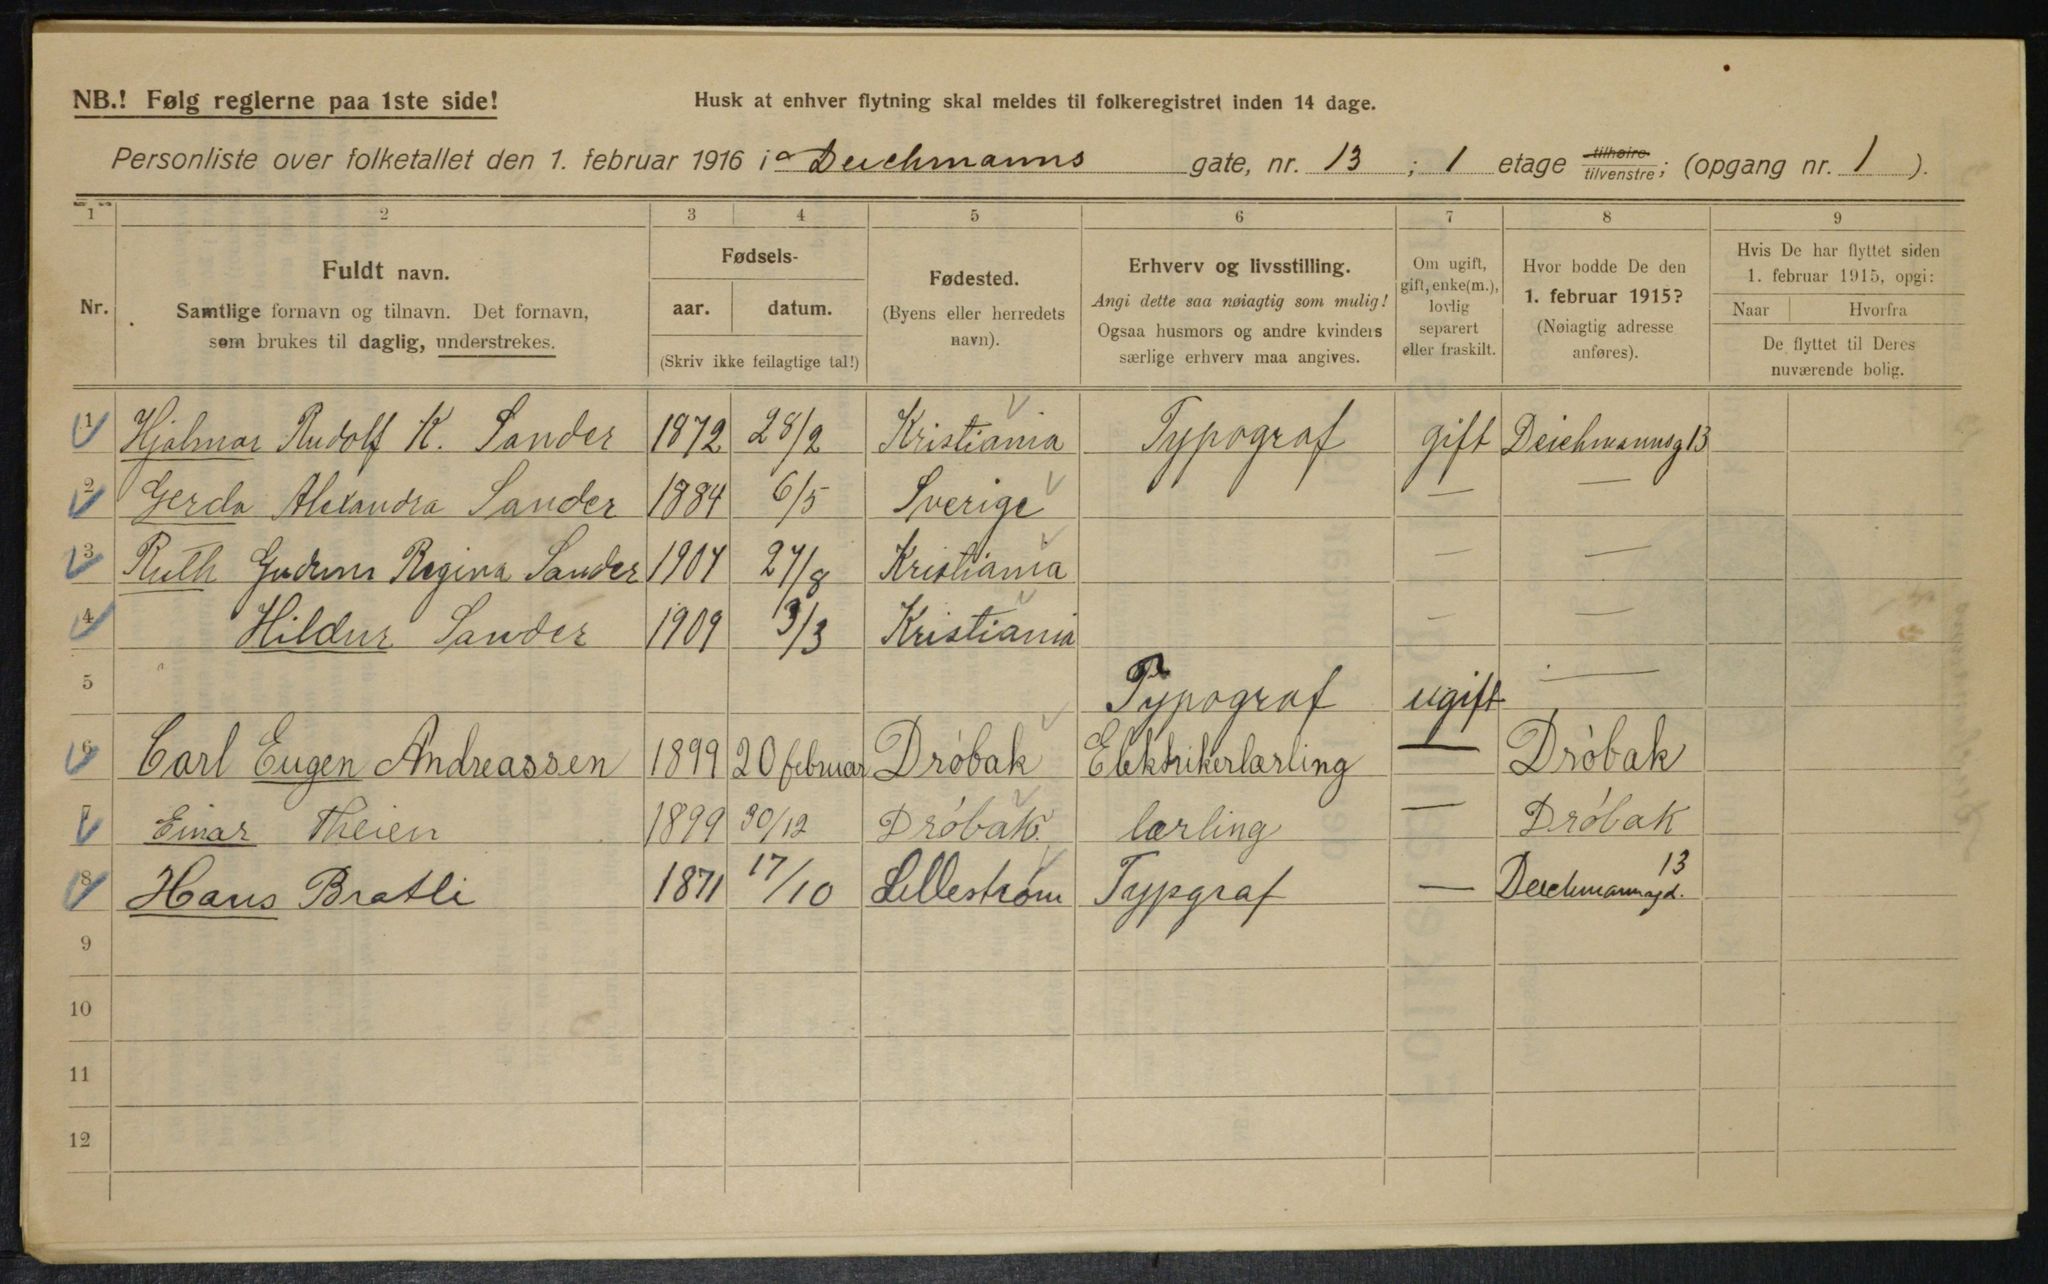 NB.! Følg reglerne paa 1ste side!
Husk at enhver flytning skal meldes til folkeregistret inden 14 dage.
Personliste over folketallet den 1. februar 1916 i Deichmanns gate, nr. 13 ; 1 etage tilhøire tilvenstre; (opgang nr. 1 ).
1 2 3 4 5 6 7 8 9
Nr.
Fuldt navn.
Samtlige fornavn og tilnavn. Det fornavn,
som brukes til daglig, understrekes.
Fødsels-
aar. datum.
(Skriv ikke feilagtige tal!)
Fødested.
(Byens eller herredets
navn).
Erhverv og livsstilling.
Angi dette saa nøiagtig som mulig!
Ogsaa husmors og andre kvinders
særlige erhverv maa angives.
Om ugift,
gift, enke(m.),
lovlig
separert
eller fraskilt.
Hvor bodde De den
1. februar 1915?
(Nøiagtig adresse
anføres).
Hvis De har flyttet siden
1. februar 1915, opgi:
Naar Hvorfra
De flyttet til Deres
nuværende bolig.
1 Hjalmar Rudolf K. Sander 1872 28/2 Kristiania Typograf gift Deichmannsg 13
2 Gerda Alexandra Sander 1884 6/5 Sverige — —
3 Ruth Gudrun Regina Sander 1904 27/8 Kristiania — —
4 Hildur Sander 1909 3/3 Kristiania — —
5 Typograf ugift —
6 Carl Eugen Andreassen 1899 20 februar Drøbak Elektrikerlærling — Drøbak
7 Einar Theien 1899 30/12 Drøbak. lærling — Drøbak
8 Hans Bratli 1871 17/10 Lillestrøm Typgraf — Deichmannsgd. 13
9
10
11
12